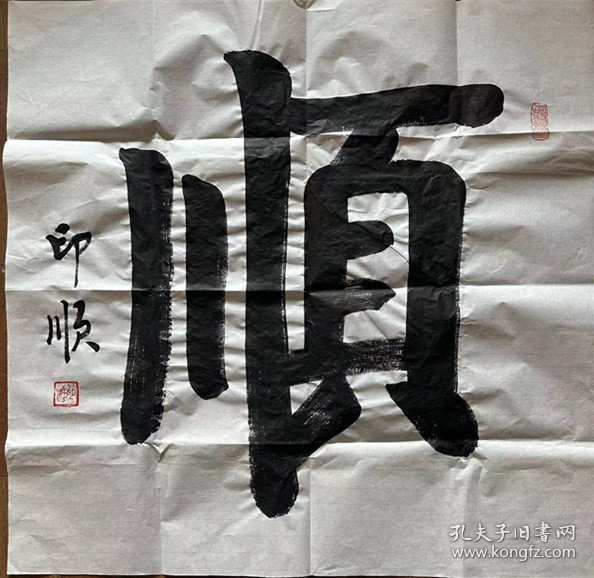 順
印顺
孔夫子旧书网
www.kongfz.com